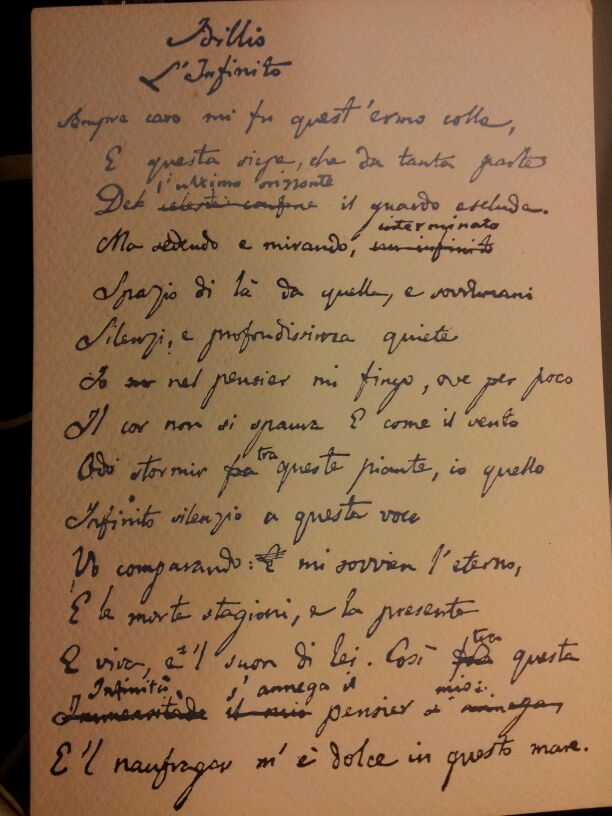 Idillio
L'Infinito
Sempre caro mi fu quest'ermo colle,
E questa siepe, che da tanta parte
l'ultimo orizzonte
Del celeste confine il guardo esclude.
interminato
Ma sedendo e mirando, un infinito
Spazio di là da quella, e sovrumani
Silenzi, e profondissima quiete
Io nel pensier mi fingo, ove per poco
Il cor non si spaura E come il vento
tra
Odo stormir fra queste piante, io quello
Infinito silenzio a questa voce
Vo comparando: E mi sovvien l'eterno,
E le morte stagioni, e la presente
E viva, e 'l suon di lei. Così fra questa
tra
Infinità s'annega il mio:
Immensitade il mio pensier s'annega,
E 'l naufragar m'è dolce in questo mare.